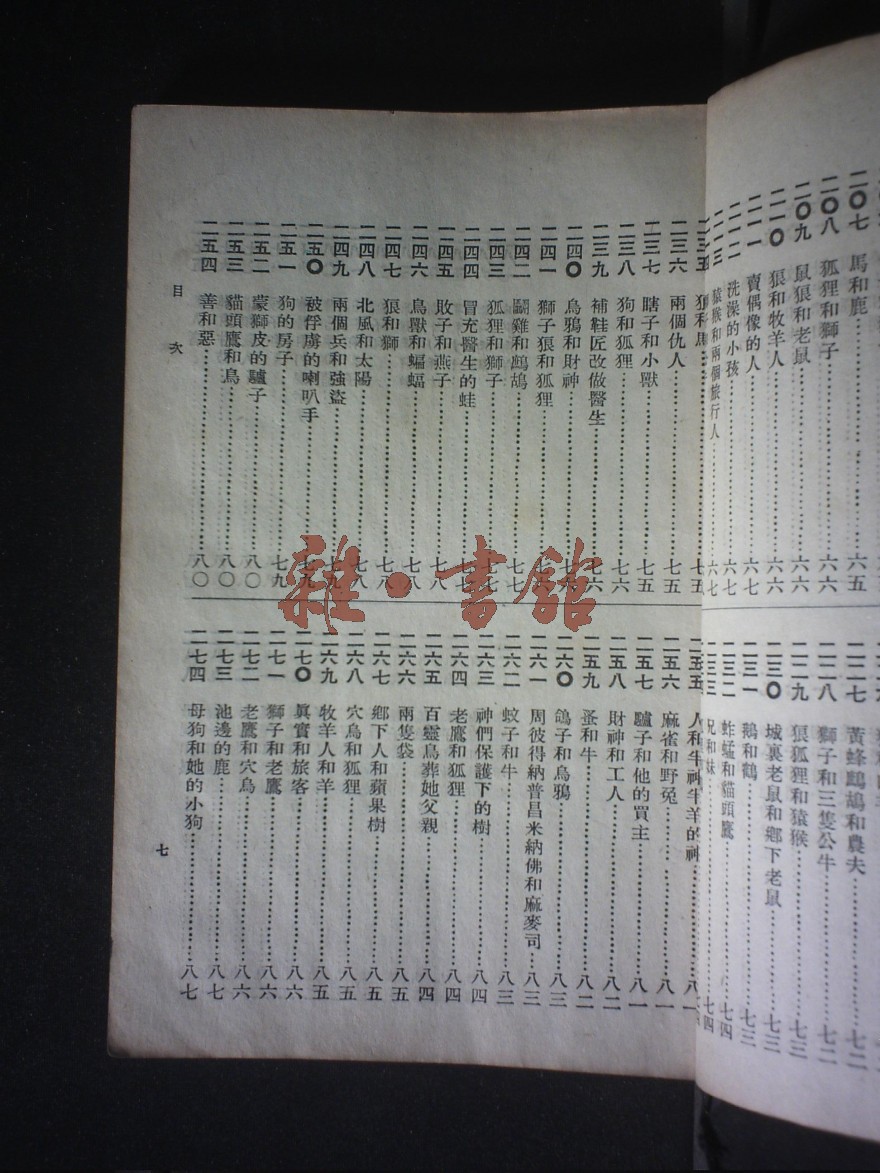 二〇七 馬和鹿 六五
二〇八 狐狸和獅子 六六
二〇九 鼠狼和老鼠 六六
二一〇 狼和牧羊人 六六
二一一 賣偶像的人 六七
二一二 洗澡的小孩 六七
二一三 猿猴和兩個旅行人 六七
二二七 黃蜂鷓鴣和農夫 七二
二二八 獅子和三隻公牛 七二
二二九 狼狐狸和猿猴 七三
二三〇 城裏老鼠和鄉下老鼠 七三
二三一 鵝和鶴 七三
二三二 蚱蜢和貓頭鷹 七四
二三三 兄和妹 七四
二三五 狼和馬 七五
二三六 兩個仇人 七五
二三七 瞎子和小獸 七五
二三八 狗和狐狸 七六
二三九 補鞋匠改做醫生 七六
二四〇 烏鴉和財神
二四一 獅子狼和狐狸
二四二 鬭雞和鷓鴣 七七
二四三 狐狸和獅子
二四四 冒充醫生的蛙
二四五 敗子和燕子 七八
二四六 鳥獸和蝙蝠 七八
二四七 狼和獅 七八
二四八 北風和太陽 七八
二四九 兩個兵和強盜
二五〇 被俘虜的喇叭手
二五一 狗的房子 七九
二五二 蒙獅皮的驢子 八〇
二五三 貓頭鷹和鳥 八〇
二五四 善和惡 八〇
二五五 人和牛神牛羊的神 八一
二五六 麻雀和野兔 八一
二五七 驢子和他的買主 八一
二五八 財神和工人 八二
二五九 蚤和牛 八二
二六〇 鴿子和烏鴉 八三
二六一 周彼得納普昌米納佛和麻麥司 八三
二六二 蚊子和牛 八三
二六三 神們保護下的樹 八四
二六四 老鷹和狐狸 八四
二六五 百靈鳥葬她父親 八四
二六六 兩隻袋 八五
二六七 鄉下人和蘋果樹 八五
二六八 穴鳥和狐狸 八五
二六九 牧羊人和羊 八五
二七〇 眞實和旅客 八六
二七一 獅子和老鷹 八六
二七二 老鷹和穴鳥 八六
二七三 池邊的鹿 八七
二七四 母狗和她的小狗 八七
目次
七
雜·書館